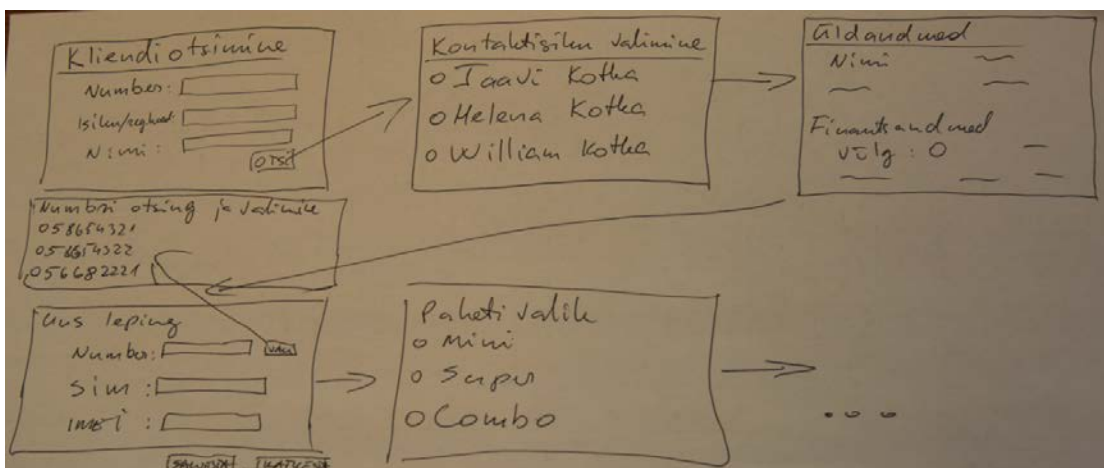 Kliendi otsimine
Number:
Isiku/regkood:
Nimi:
OTSI
Kontaktisiku valimine
Taavi Kotka
Helena Kotka
William Kotka
Üldandmed
Nimi
Finantsandmed
võlg: 0
Numbri otsing ja valimine
058654321
056654322
056682221
Uus leping
Number:
VALI
Sim:
IMEI:
SALVESTA KATKESTA
Paketi valik
Mini
Super
Combo
...